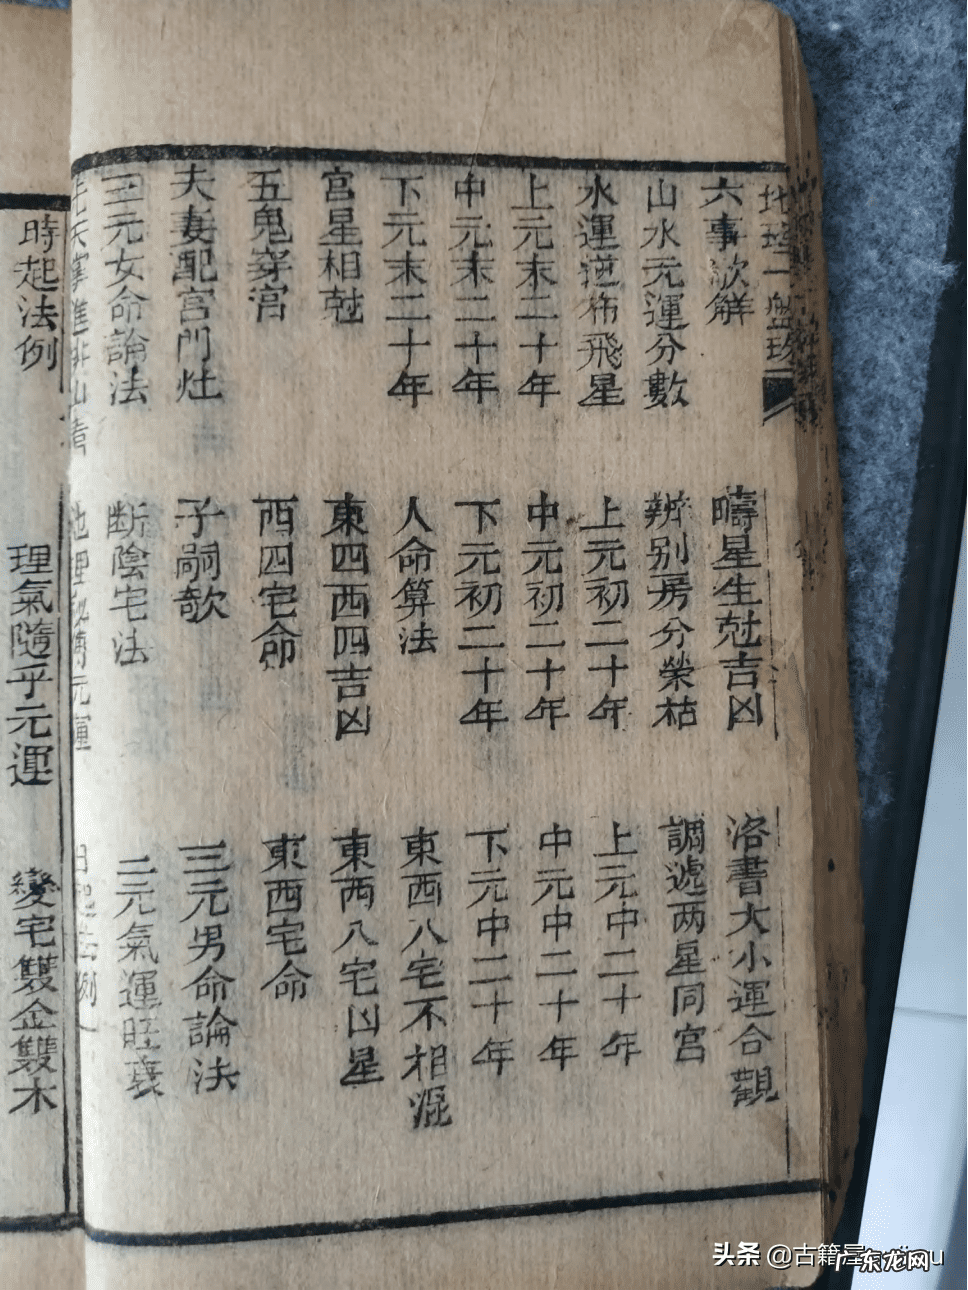 六事解 疇星生尅吉凶 洛書大小運合觀
山水元運分數 辨别房分榮枯 調遞两星同宫
水運逆布飛星 上元初二十年 上元中二十年
上元末二十年 中元初二十年 中元中二十年
中元末二十年 下元初二十年 下元中二十年
下元末二十年 人命算法 東西八宅不相混
宫星相尅 東四西四吉凶 東西八宅凶星
五鬼穿宫 西四宅命 東西宅命
夫妻配宫門灶 子嗣歌 三元男命論法
三元女命論法 断陰宅法 三元氣運旺衰
時起法例 理氣隨乎元運 變宅雙金雙木
头条 @古籍屋
广东龙网